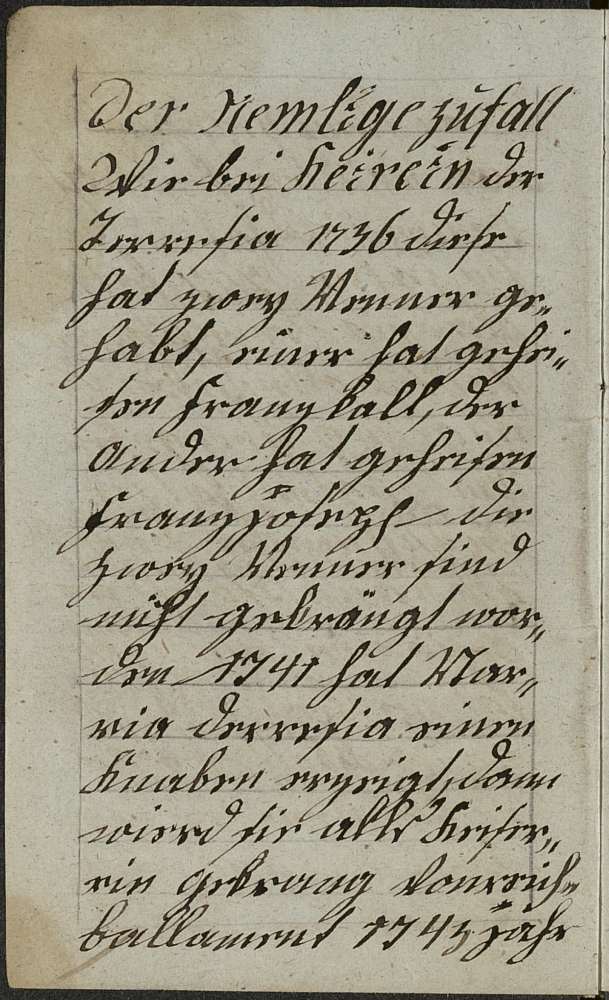 Der Nemlige zufall
Wie bei Keirein der
Terresia 1736 diese
hat zwey Menner ge„
habt, einer hat gehei„
sen Franz kall, der
ander hat geheisen
Franz Joseph die
zwey Menner sind
nicht gekrängt wor„
den 1741 hat Mar„
ria derresia einen
Knaben erzeigt, dann
wierd sie alls Keiser„
rin gekranz vonreich„
ballament 1745 jahr